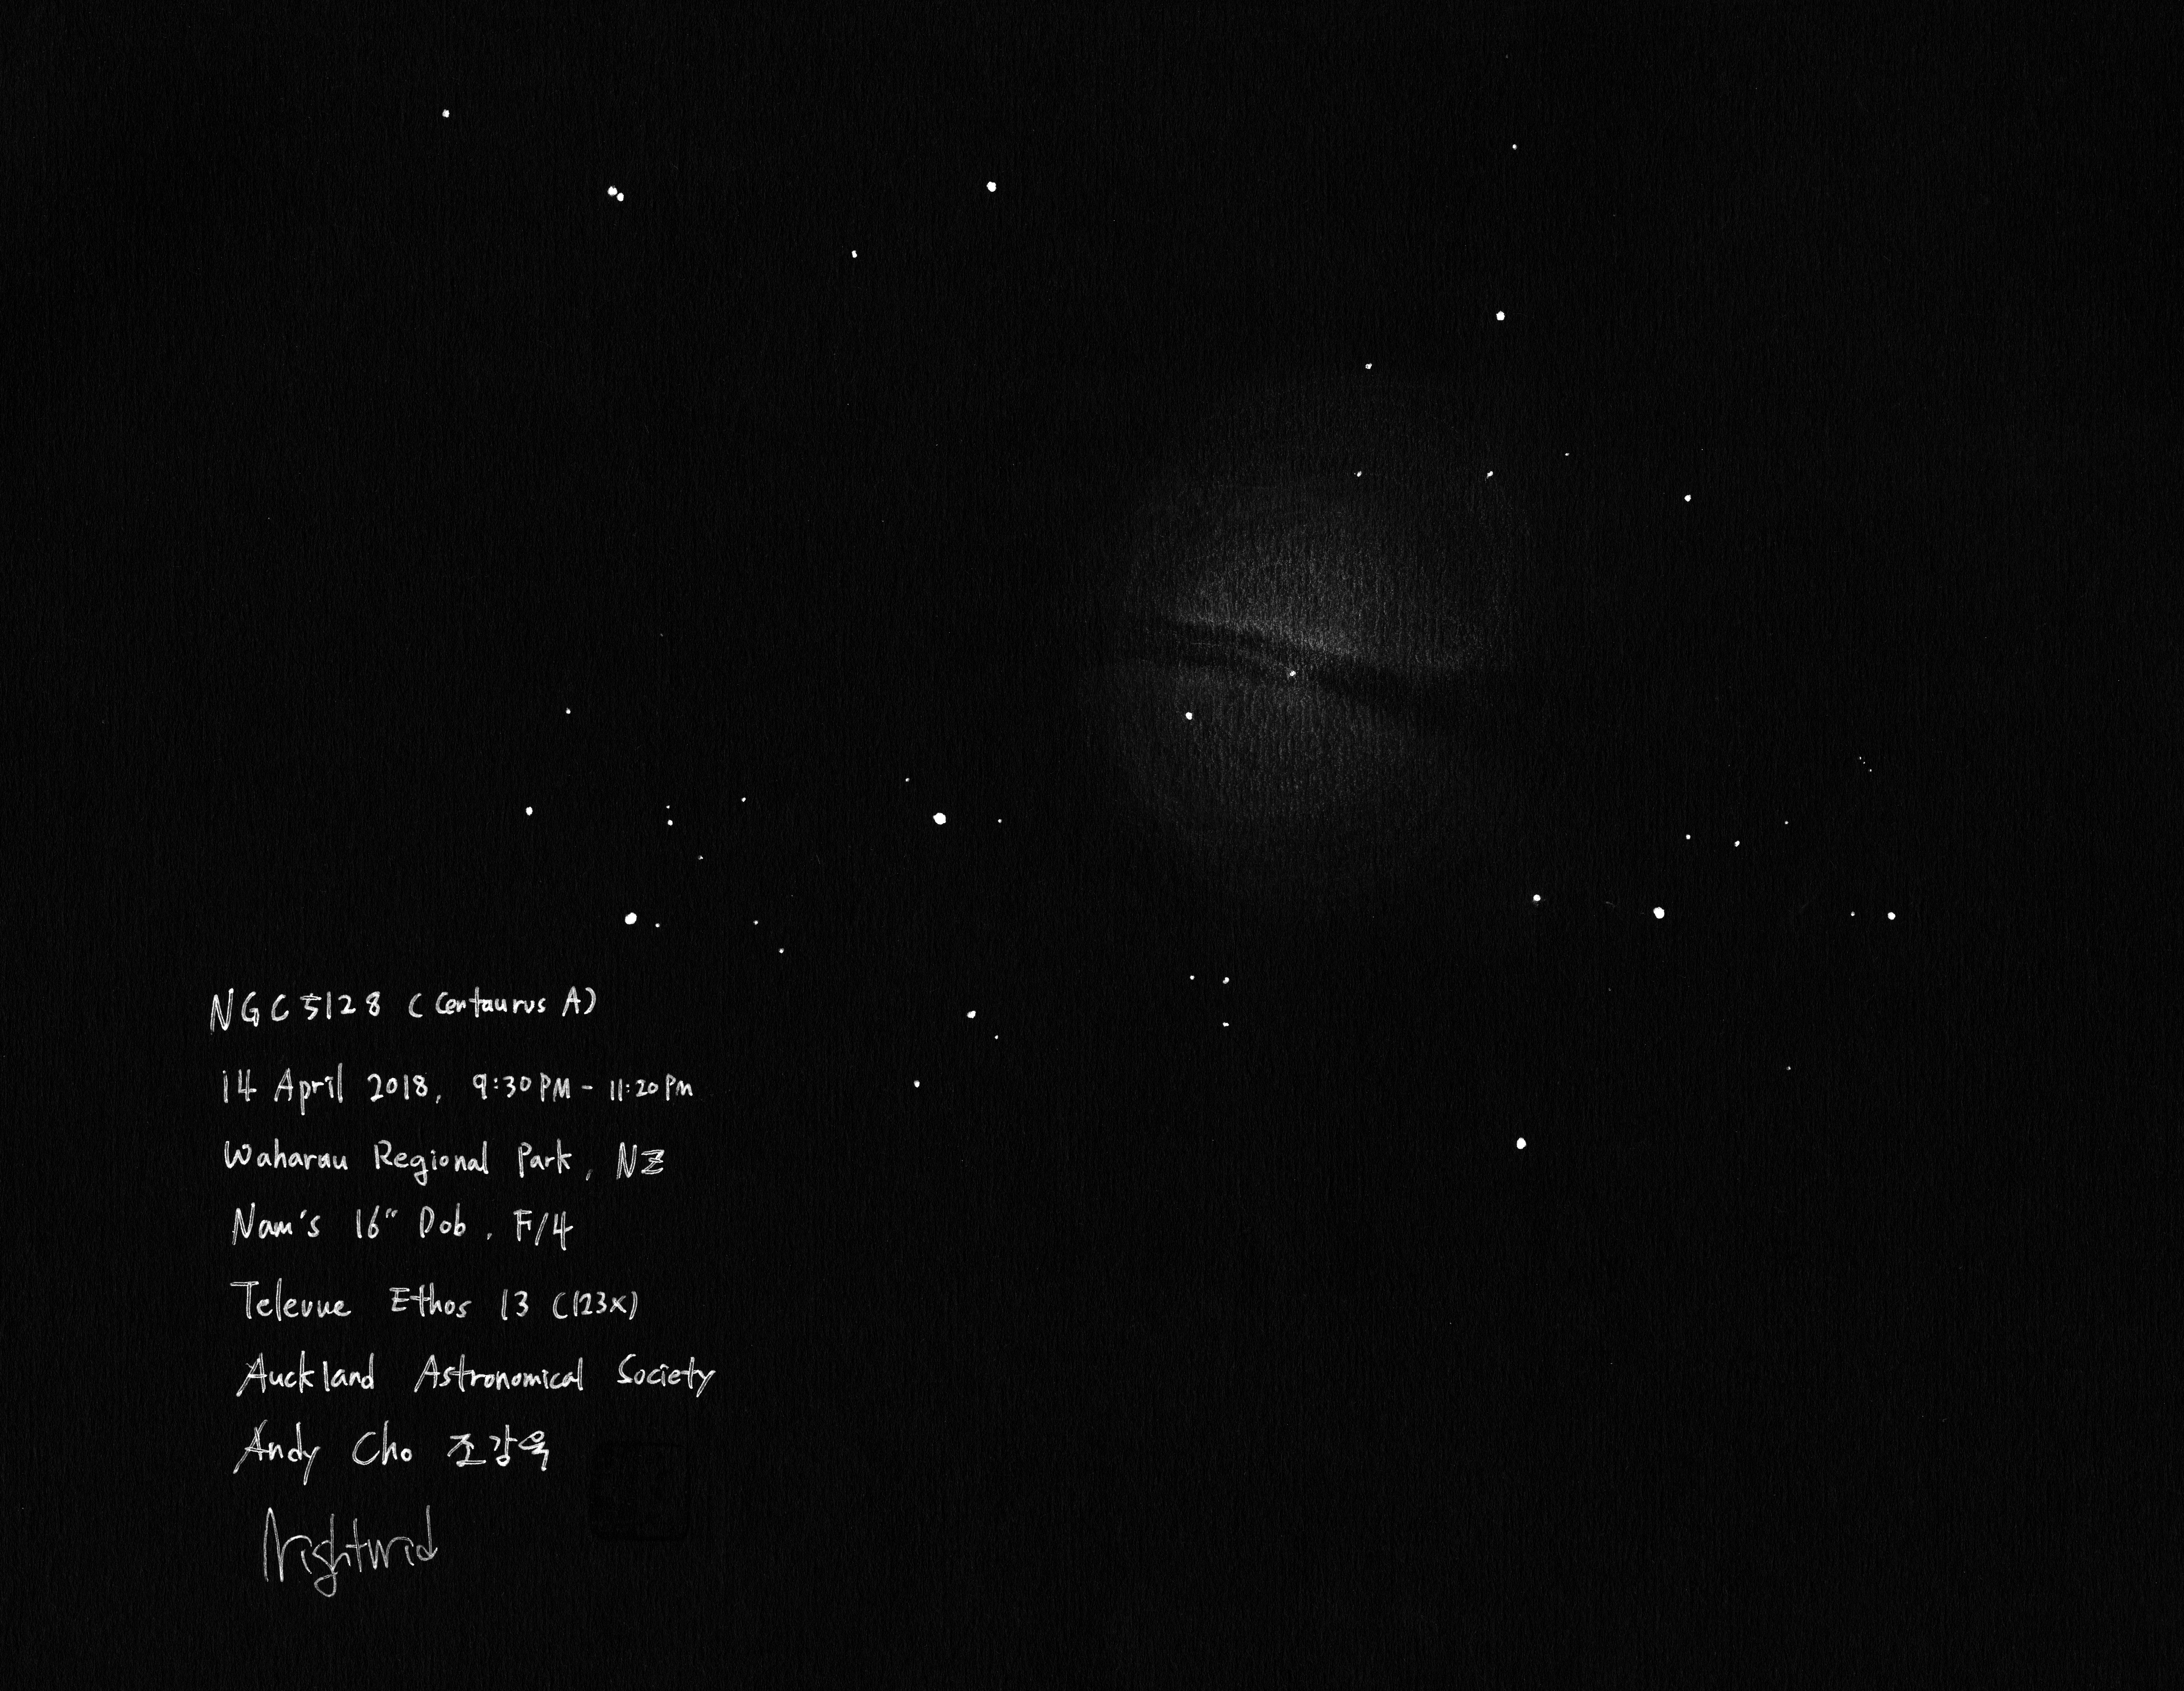 NGC 5128 (Centaurus A)
14 April 2018, 9:30PM - 11:20PM
Waharau Regional Park, NZ
Nam's 16" Dob. F/4
Televue Ethos 13 (123x)
Auckland Astronomical Society
Andy Cho 조강욱
Nightwid